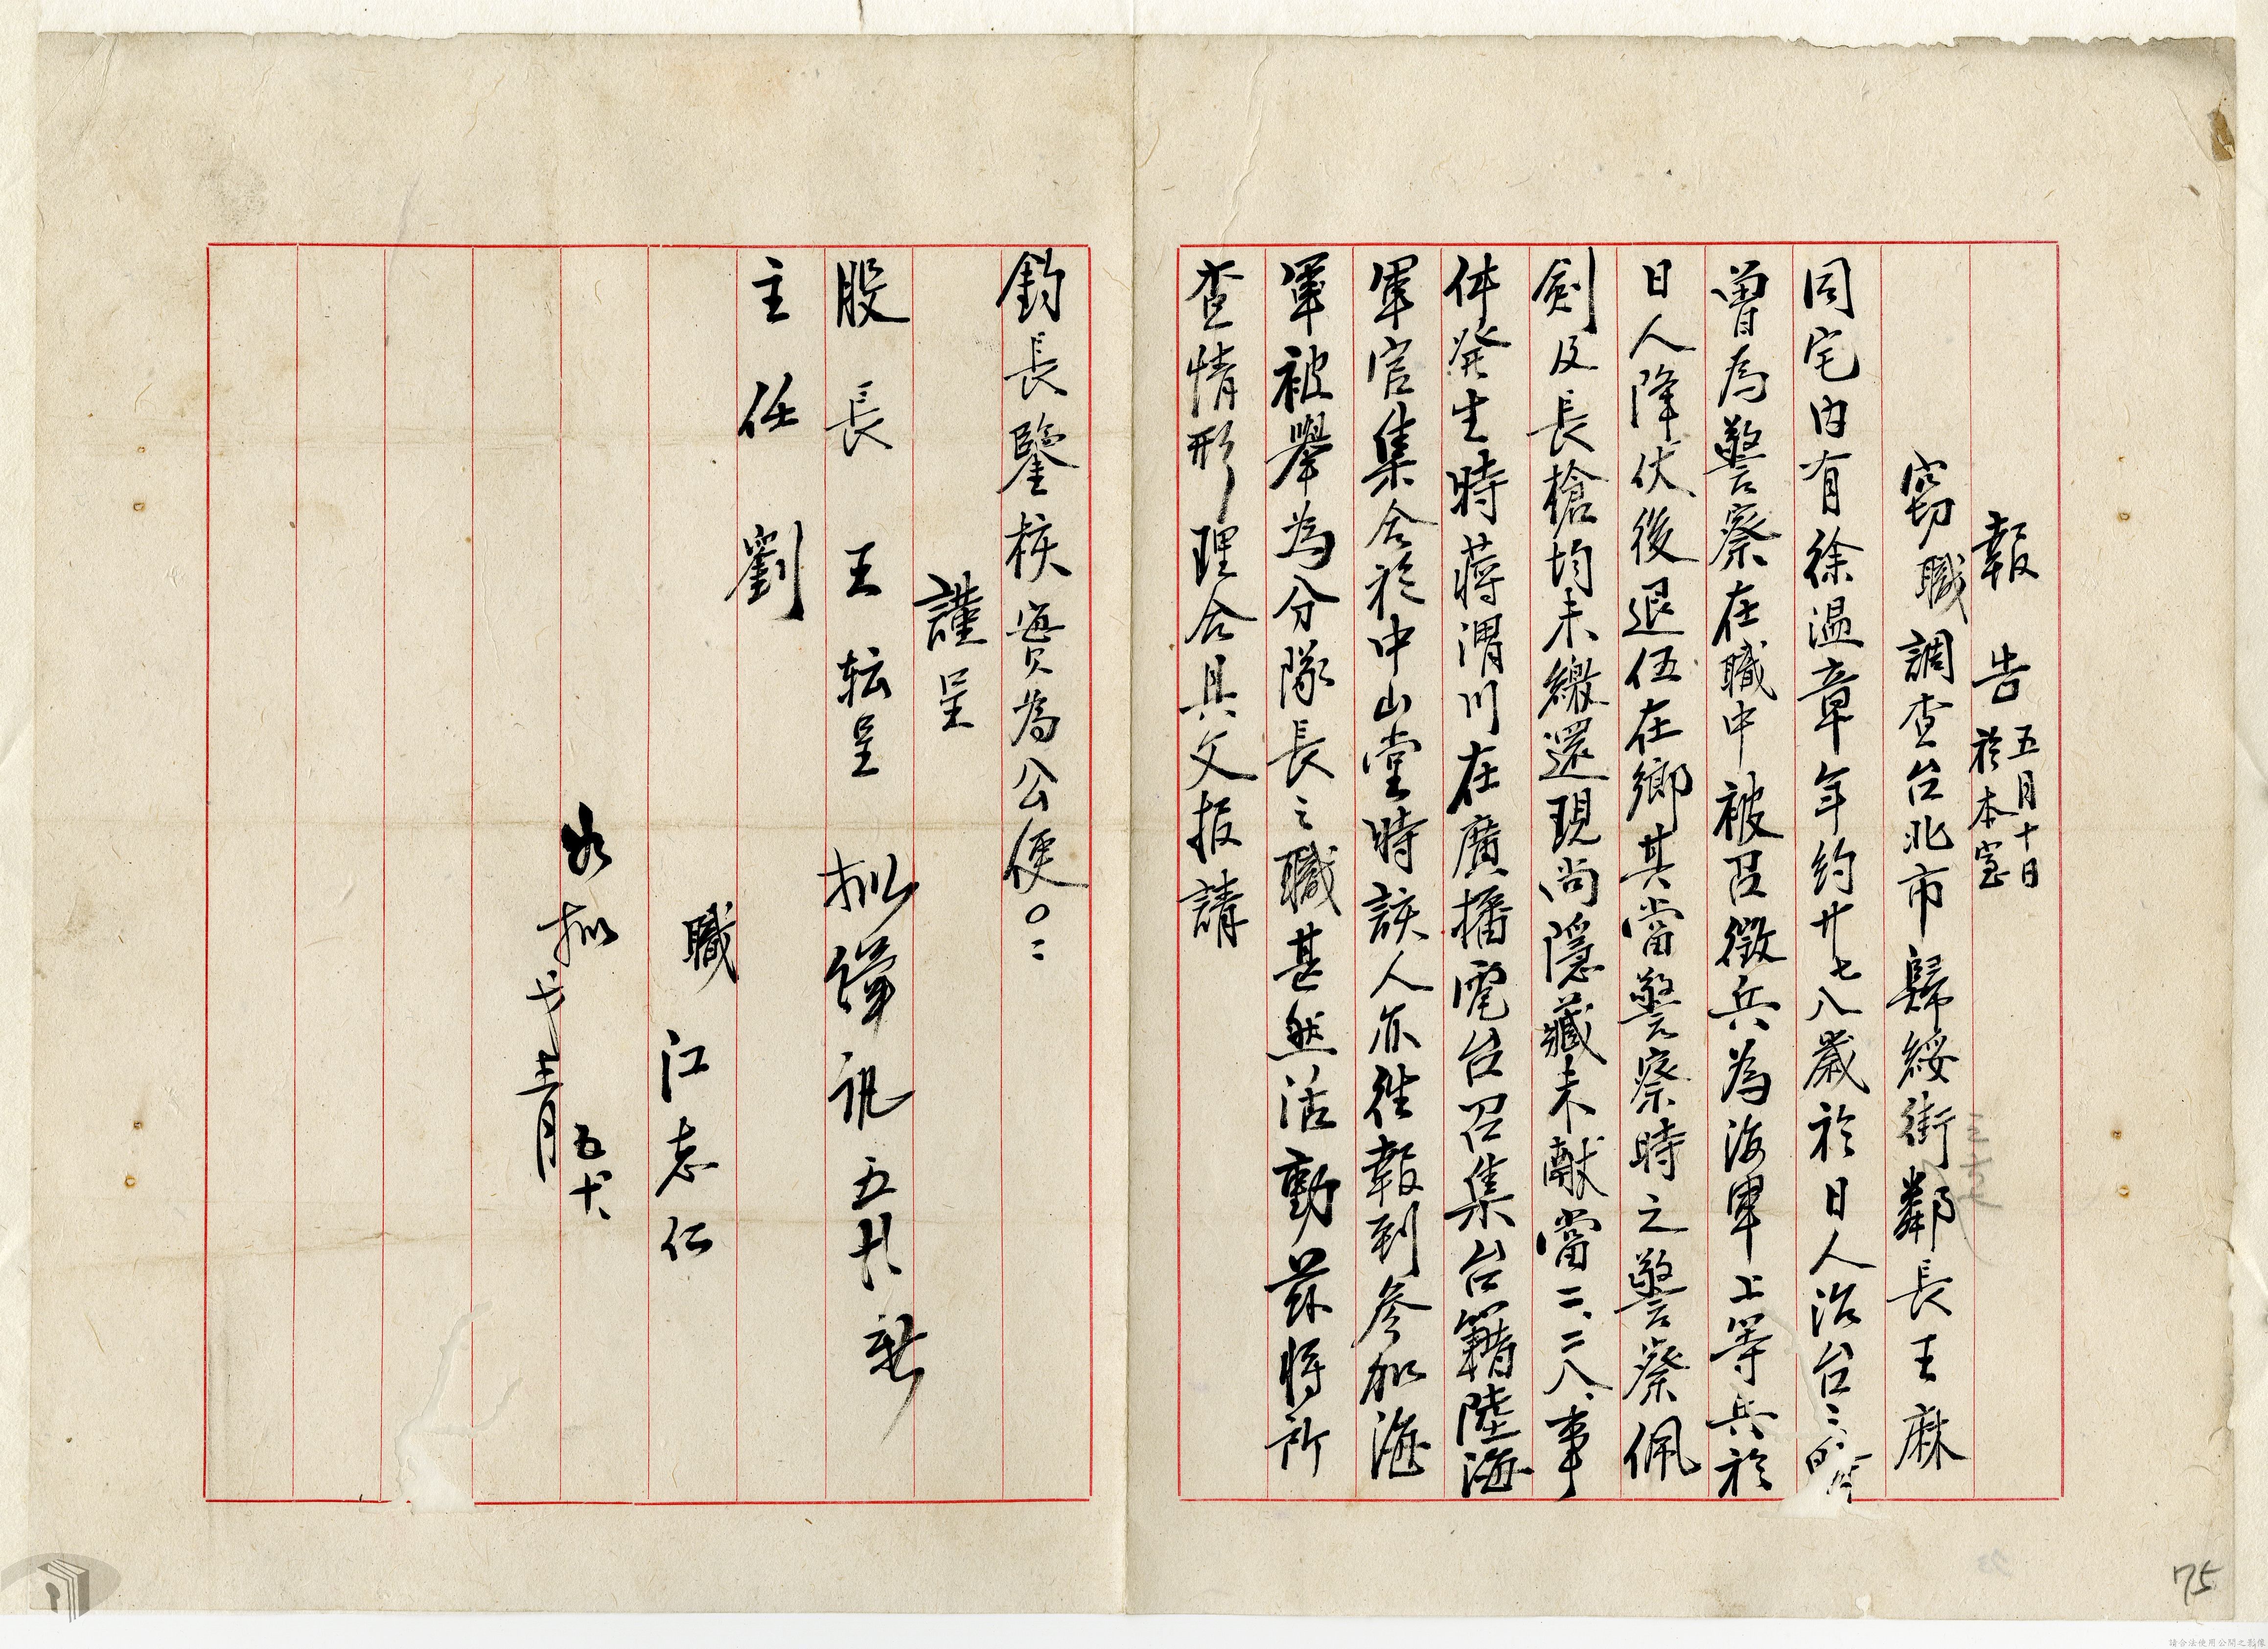 報告 五月十日
於本室
竊職調查台北市歸綏街鄰長王麻
同宅內有徐溫章年約廿七八歲於日人治台之際
曾為警察在職中被召徵兵為海軍上等兵於
日人降伏後退伍在鄉其當警察時之警察佩
劍及長槍均未繳還現尚隱藏未献當二、二八、事
件発生時蔣渭川在廣播電台召集台籍陸海
軍官集合於中山堂時該人亦徃報到參加海
軍被舉為分隊長之職甚然活動茲将所
查情形理合具文报請
鈞長鑒核實為公便。
謹呈
股長王転呈
主任劉
職江志仁
如拟
75
請合法使用公開之影像